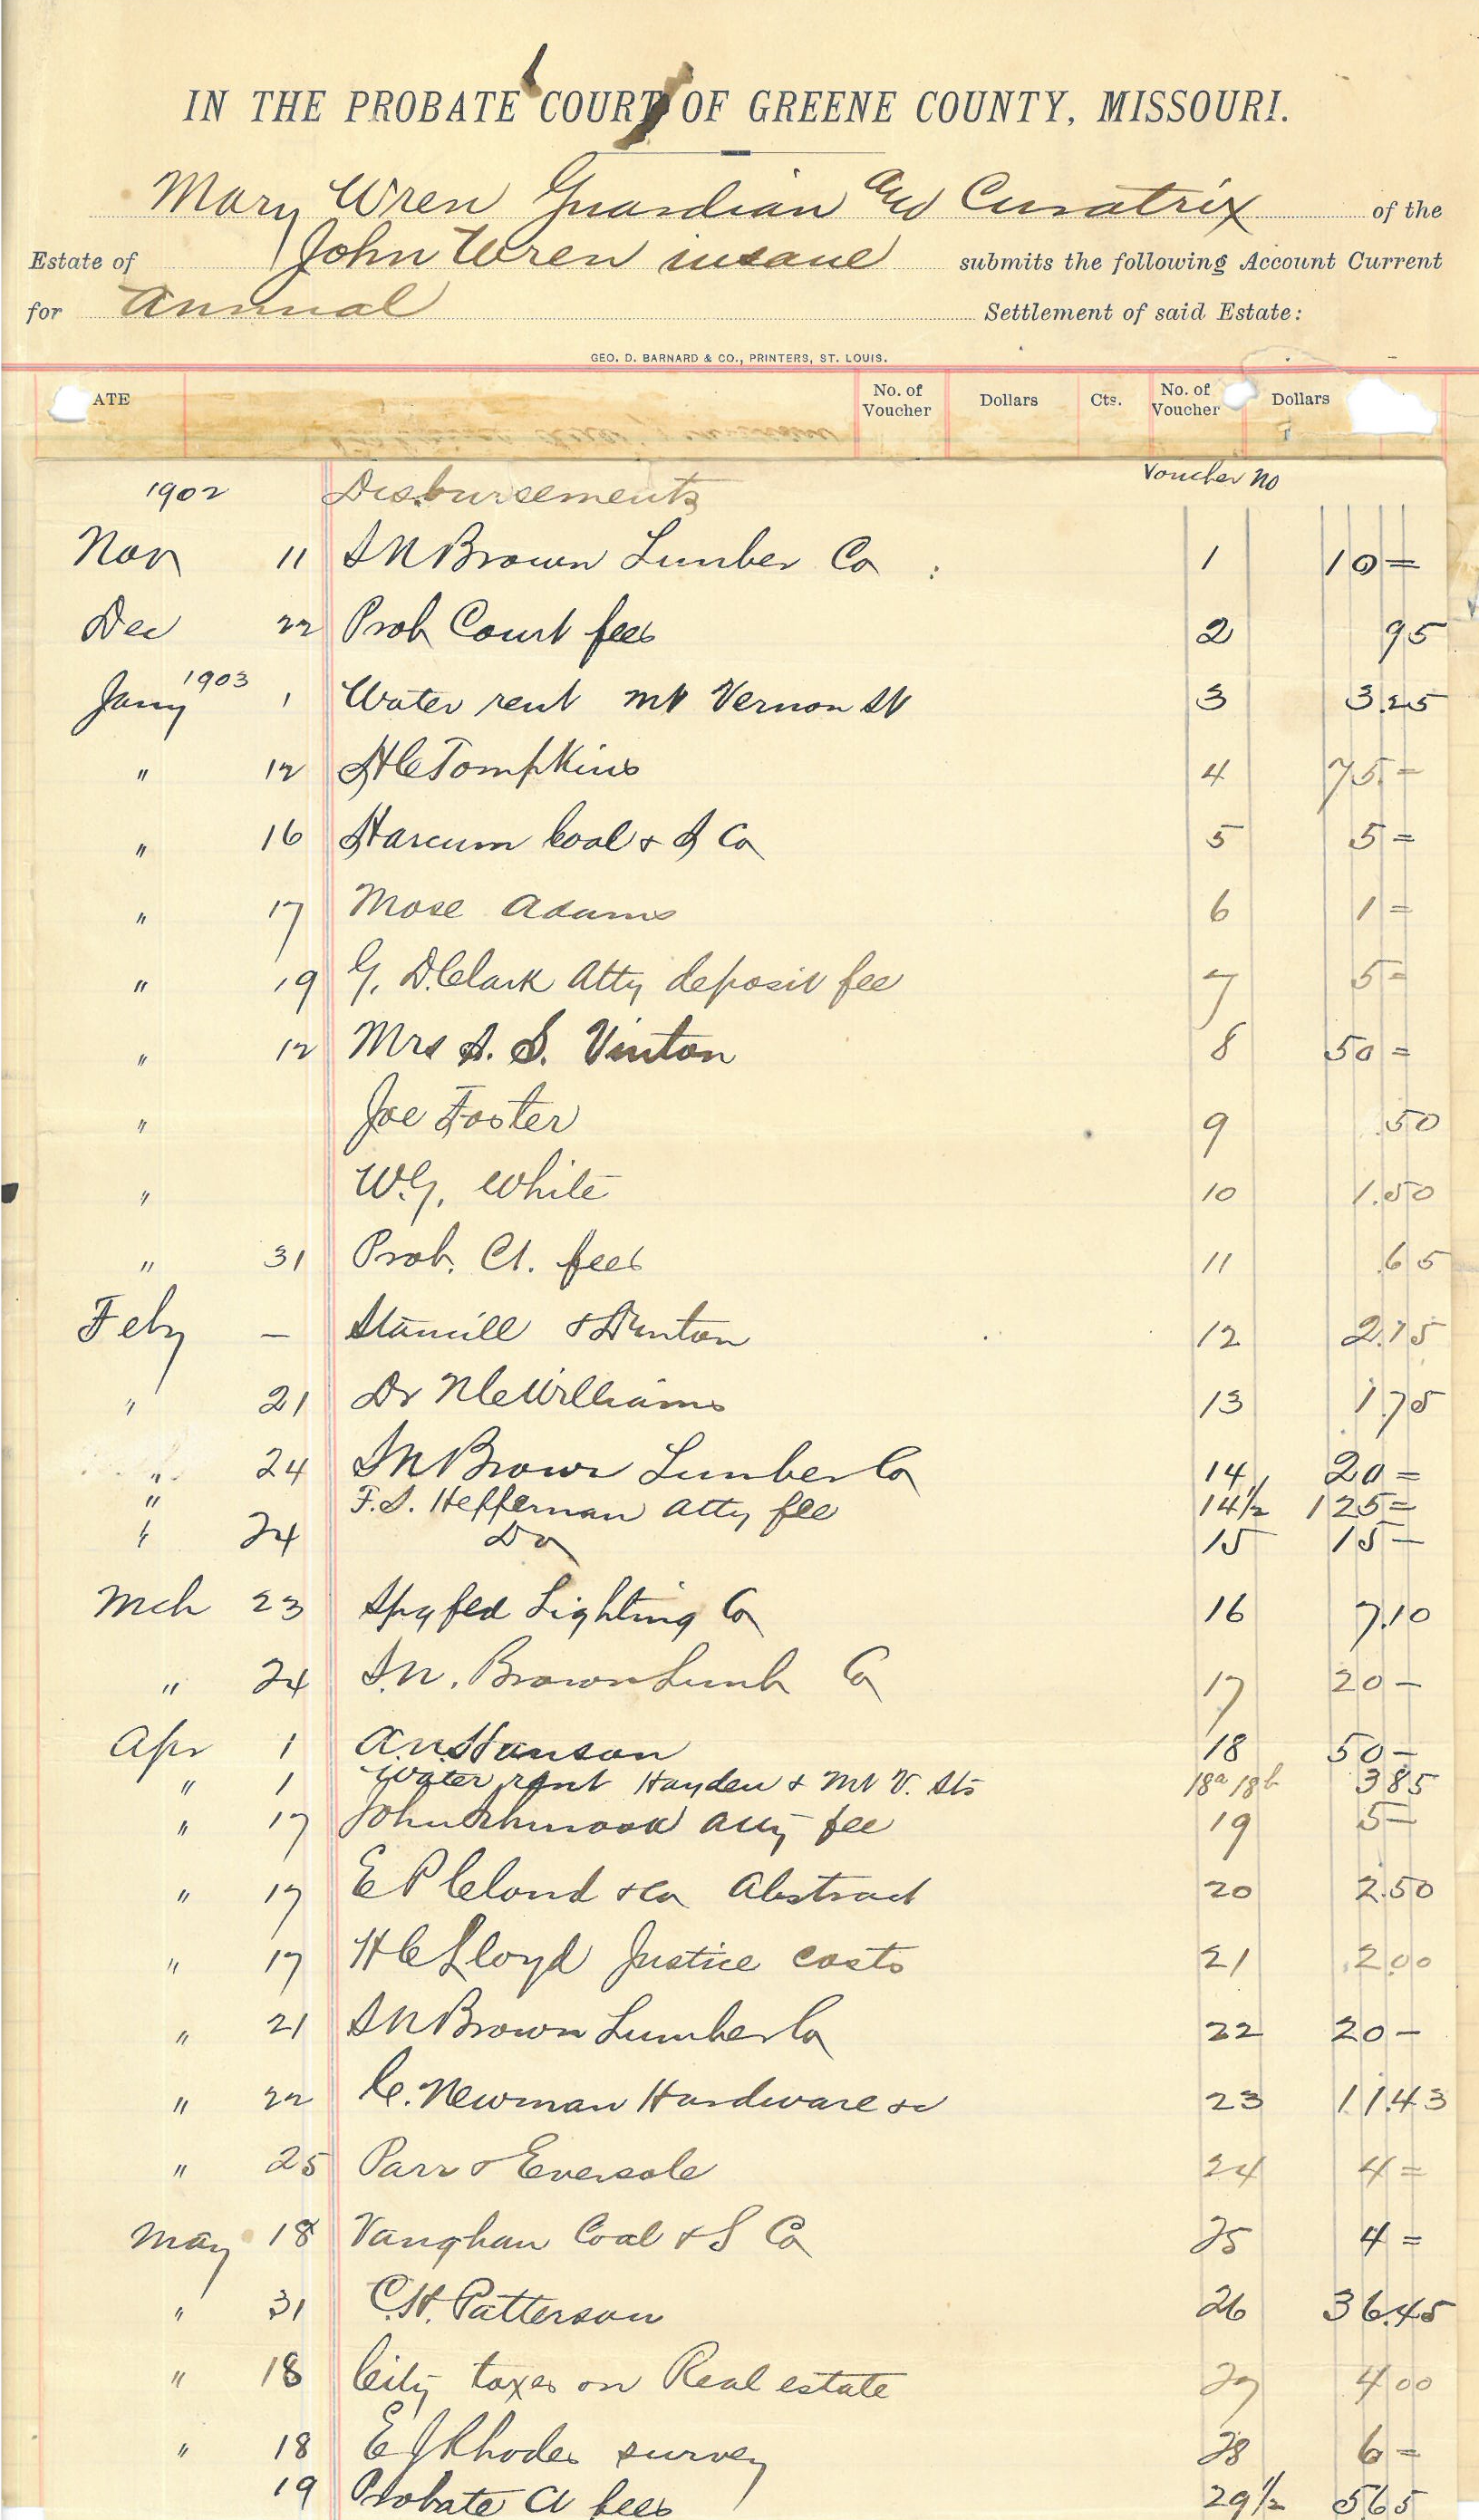 IN THE PROBATE COURT OF GREENE COUNTY, MISSOURI.
Mary Wren Guardian and Curatrix of the
Estate of John Wren insane submits the following Account Current
for Annual Settlement of said Estate:
GEO. D. BARNARD & CO., PRINTERS, ST. LOUIS.
ATE No. of Voucher Dollars Cts. No. of Voucher Dollars
1902 Disbursements Voucher No
Nov 11 S N Brown Lumber Co 1 10 =
Dec 22 Prob Court fees 2 95
Jany 1903 1 Water rent Mt Vernon St 3 3.25
" 12 H C Tompkins 4 75. =
" 16 Harcum Coal & I Co 5 5 =
" 17 Mose Adams 6 1 =
" 19 G. D. Clark Atty deposit fee 7 5 =
" 12 Mrs A. S. Vinton 8 50 =
" Joe Foster 9 .50
" W. G. White 10 1.50
" 31 Prob. Ct. fees 11 .65
Feby — & 12 2.75
" 21 Dr Williams 13 1.75
" 24 S N Brown Lumber Co 14 20 =
" F. S. Heffernan Atty fee 14½ 125 =
" 24 Do 15 15 —
Mch 23 Spgfed Lighting Co 16 7.10
" 24 S. N. Brown Lumb Co 17 20 —
Apr 1 A. N. Hanson 18 50 —
" 1 Water rent Hayden & Mt V. Sts 18a 18b 3 85
" 17 John Schmook Atty fee 19 5 —
" 17 E P Cloud & Co Abstract 20 2.50
" 17 H C Lloyd Justice costs 21 2.00
" 21 S N Brown Lumber Co 22 20 —
" 22 C. Newman Hardware &c 23 11.43
" 25 Parr & Eversole 24 4 =
May 18 Vaughan Coal & S Co 25 4 =
" 31 C. H. Patterson 26 36.45
" 18 City taxes on Real estate 27 4 00
" 18 E J Rhodes survey 28 6 =
19 Probate Ct fees 29½ 5 65